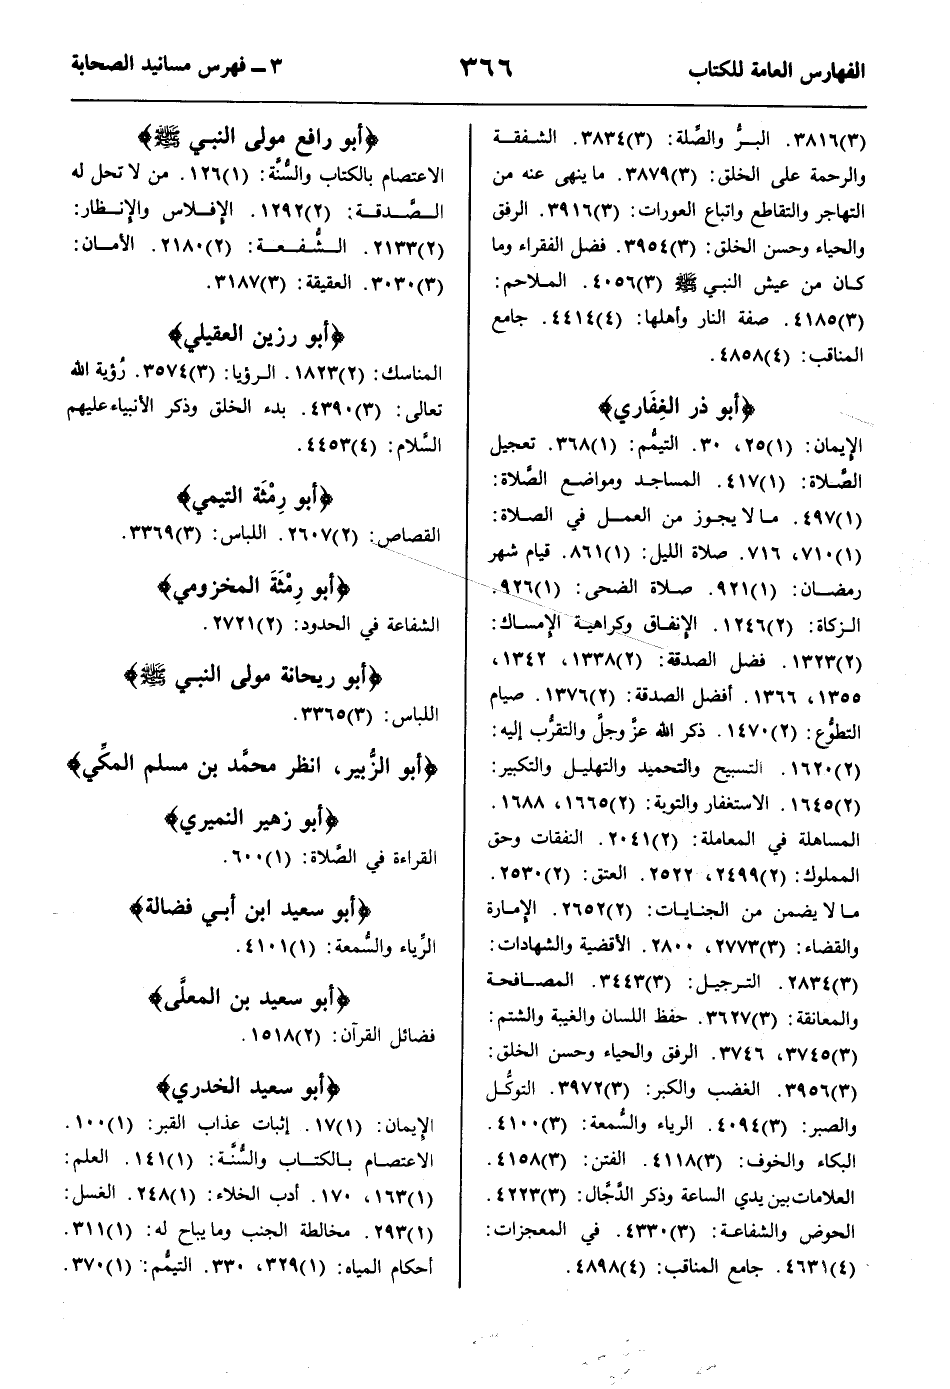 الفهارس العامة للكتاب ٣٦٦ ٣ ـ فهرس مسانيد الصحابة
(٣)٣٨١٦. البـرُّ والصِّلة: (٣)٣٨٣٤. الشـفقـة
والرحمة على الخلق: (٣)٣٨٧٩. ما ينهى عنه من
التهاجر والتقاطع واتباع العورات: (٣)٣٩١٦. الرفق
والحياء وحسن الخلق: (٣)٣٩٥٤. فضل الفقراء وما
كـان من عيش النبي ﷺ (٣)٤٠٥٦. المـلاحـم:
(٣)٤١٨٥. صفة النار وأهلها: (٤)٤٤١٤. جامع
المناقب: (٤)٤٨٥٨.
﴿أبو ذر الغِفَاري﴾
الإيمان: (١)٢٥، ٣٠. التيمُّم: (١)٣٦٨. تعجيل
الصَّـلاة: (١)٤١٧. المسـاجـد ومواضـع الصَّلاة:
(١)٤٩٧. مـا لا يـجوز من العمـل في الصـلاة:
(١)٧١٠، ٧١٦. صلاة الليل: (١)٨٦١. قيام شهر
رمضـان: (١)٩٢١. صـلاة الضحى: (١)٩٢٦.
الـزكاة: (٢)١٢٤٦. الإنفـاق وكراهية الإمساك:
(٢)١٣٢٣. فضل الصدقة: (٢)١٣٣٨، ١٣٤٢،
١٣٥٥، ١٣٦٦. أفضل الصدقة: (٢)١٣٧٦. صيام
التطوُّع: (٢)١٤٧٠. ذكر الله عزَّ وجلَّ والتقرُّب إليه:
(٢)١٦٢٠. التسبيح والتحميد والتهليل والتكبير:
(٢)١٦٤٥. الاستغفار والتوبة: (٢)١٦٦٥، ١٦٨٨.
المساهلة في المعاملة: (٢)٢٠٤١. النفقات وحق
المملوك: (٢)٢٤٩٩، ٢٥٢٢. العتق: (٢)٢٥٣٠.
مـا لا يضمن من الجنـايـات: (٢)٢٦٥٢. الإمـارة
والقضاء: (٣)٢٧٧٣، ٢٨٠٠. الأقضية والشهادات:
(٣)٢٨٣٤. التـرجيـل: (٣)٣٤٤٣. المصـافحـة
والمعانقة: (٣)٣٦٢٧. حفظ اللسان والغيبة والشتم:
(٣)٣٧٤٥، ٣٧٤٦. الرفق والحياء وحسن الخلق:
(٣)٣٩٥٦. الغضب والكبر: (٣)٣٩٧٢. التوكُّـل
والصبر: (٣)٤٠٩٤. الرياء والسُّمعة: (٣)٤١٠٠.
البكاء والخوف: (٣)٤١١٨. الفتن: (٣)٤١٥٨.
العلامات بين يدي الساعة وذكر الدَّجَّال: (٣)٤٢٢٣.
الحوض والشفاعـة: (٣)٤٣٣٠. في المعجزات:
(٤)٤٦٣١. جامع المناقب: (٤)٤٨٩٨.
﴿أبو رافع مولى النبي ﷺ﴾
الاعتصام بالكتاب والسُّنَّة: (١)١٢٦. من لا تحل له
الصَّـدقـة: (٢)١٢٩٢. الإفـلاس والإنـظار:
(٢)٢١٣٣. الشُّـفعـة: (٢)٢١٨٠. الأمـان:
(٣)٣٠٣٠. العقيقة: (٣)٣١٨٧.
﴿أبو رزين العقيلي﴾
المناسك: (٢)١٨٢٣. الـرؤيا: (٣)٣٥٧٤. رُؤية الله
تعالى: (٣)٤٣٩٠. بدء الخلق وذكر الأنبياء عليهم
السَّلام: (٤)٤٤٥٣.
﴿أبو رِمْثَة التيمي﴾
القصاص: (٢)٢٦٠٧. اللباس: (٣)٣٣٦٩.
﴿أبو رِمْثَةَ المخزومي﴾
الشفاعة في الحدود: (٢)٢٧٢١.
﴿أبو ريحانة مولى النبـي ﷺ﴾
اللباس: (٣)٣٣٦٥.
﴿أبو الزُّبير، انظر محمَّد بن مسلم المكِّي﴾
﴿أبو زهير النميري﴾
القراءة في الصَّلاة: (١)٦٠٠.
﴿أبو سعيد ابن أبـي فضالة﴾
الرِّياء والسُّمعة: (١)٤١٠١.
﴿أبو سعيد بن المعلَّى﴾
فضائل القرآن: (٢)١٥١٨.
﴿أبو سعيد الخدري﴾
الإيمان: (١)١٧. إثبات عذاب القبر: (١)١٠٠.
الاعتصـام بـالكتـاب والسُّنَّـة: (١)١٤١. العلم:
(١)١٦٣، ١٧٠. أدب الخلاء: (١)٢٤٨. الغسل:
(١)٢٩٣. مخالطة الجنب وما يباح له: (١)٣١١.
أحكام المياه: (١)٣٢٩، ٣٣٠. التيمُّم: (١)٣٧٠.